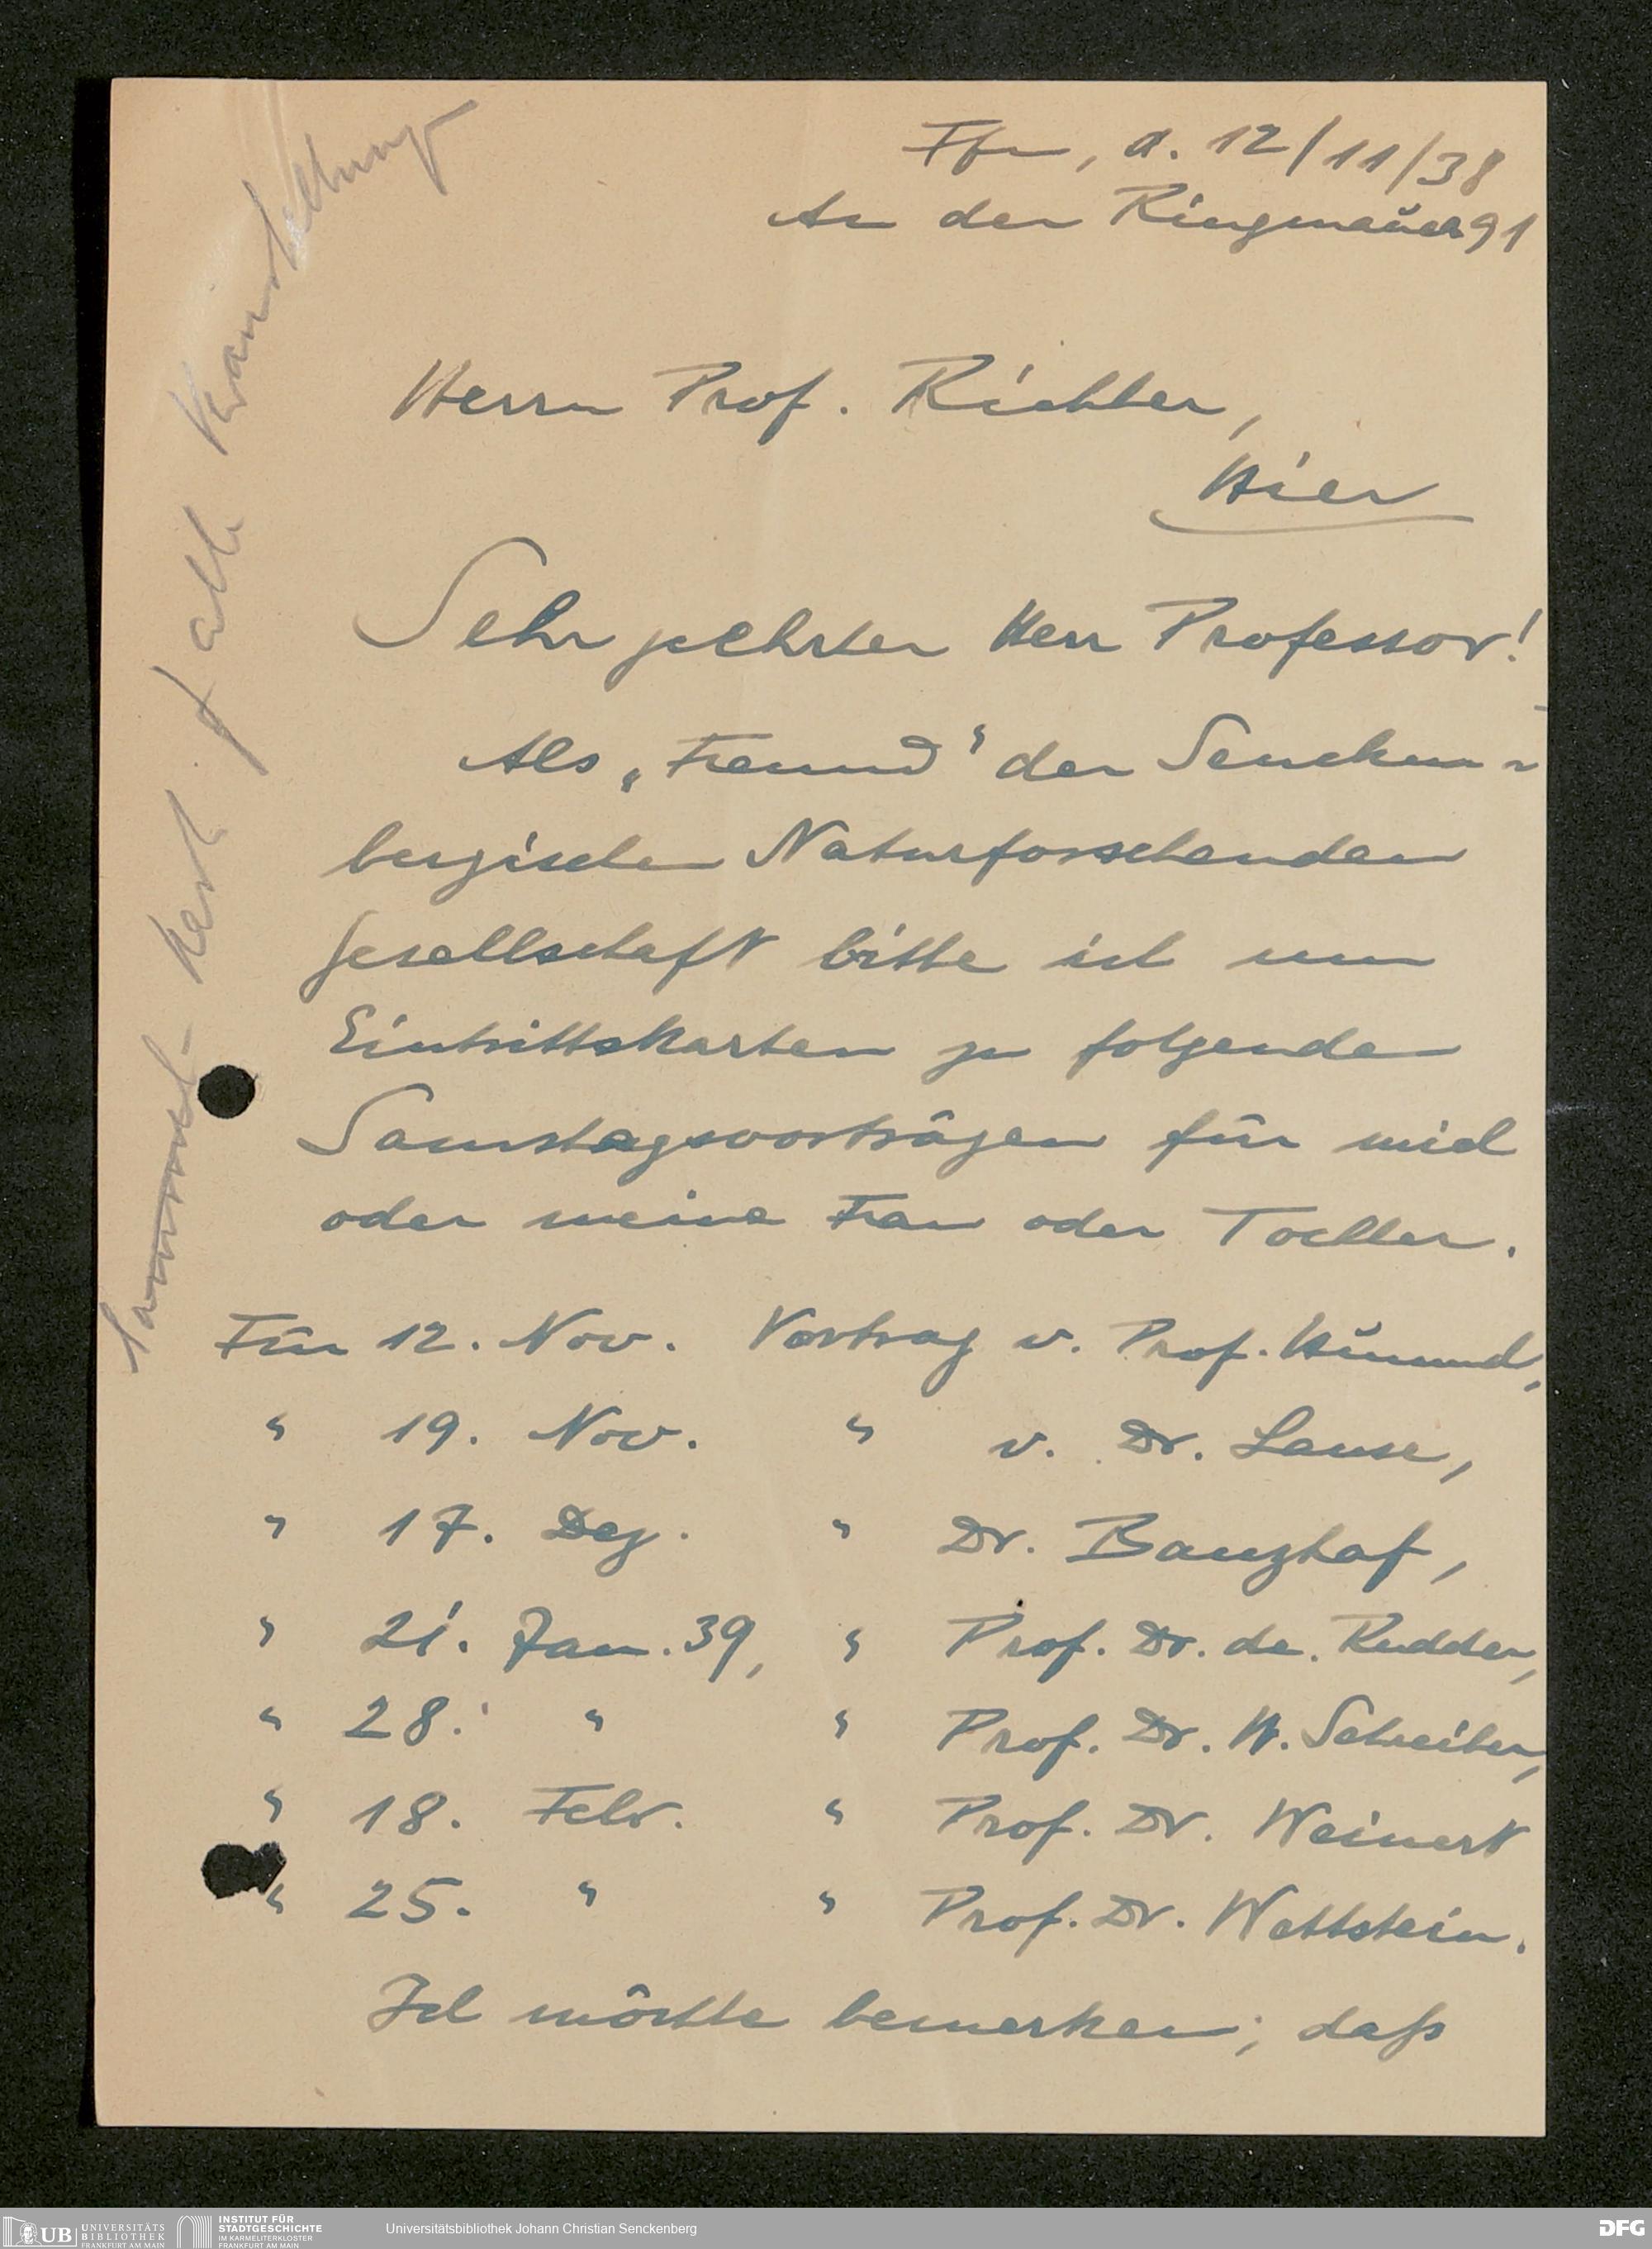 Ffm, d. 12/11/38
An der Ringmauer 91
Herrn Prof. Richter,
Hier
Sehr geehrter Herr Professor!
Als „Freund“ der Sencken-
bergischen Naturforschenden
Gesellschaft bitte ich um
Eintrittskarten zu folgenden
Samstagsvorträgen für mich
oder meine Frau oder Tochter.
Für 12. Nov. Vortrag v. Prof. Hummel,
" 19. Nov. " v. Dr. Lause,
" 17. Dez. " Dr. Banzhaf,
" 21. Jan. 39, " Prof. Dr. de. Rudder,
" 28. " " Prof. Dr. H. Schreiber,
" 18. Febr. " Prof. Dr. Weinert
" 25. " " Prof. Dr. Wettstein.
Ich möchte bemerken, daß
UB UNIVERSITÄTS
BIBLIOTHEK
FRANKFURT AM MAIN
INSTITUT FÜR
STADTGESCHICHTE
IM KARMELITERKLOSTER
FRANKFURT AM MAIN
Universitätsbibliothek Johann Christian Senckenberg
DFG